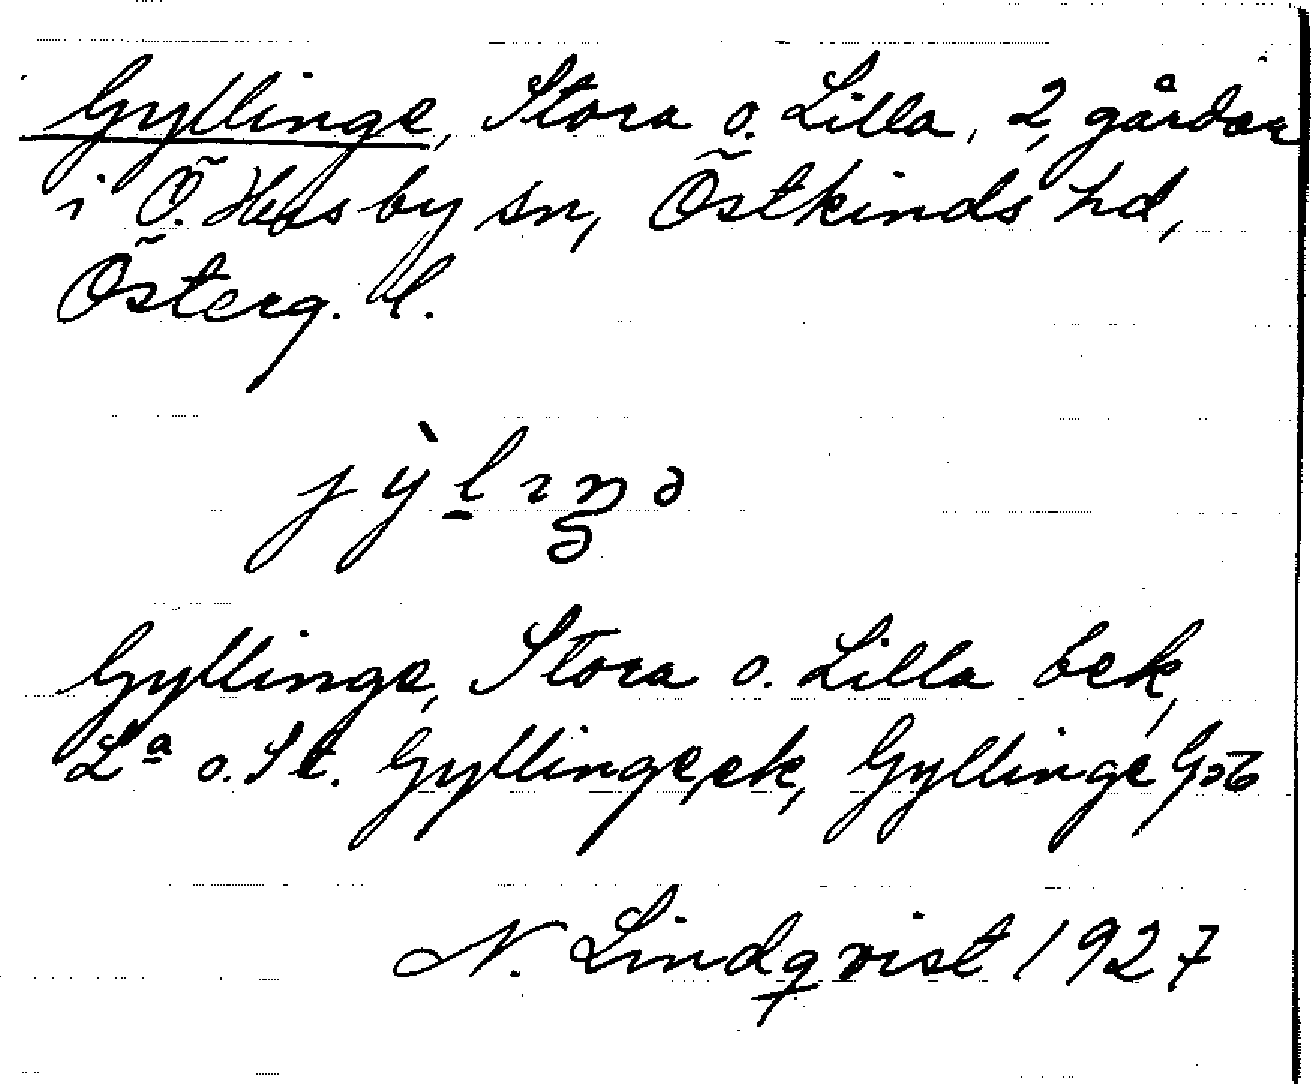 Gyllinge, Stora o. Lilla, 2 gårdar
i Ö. Husby sn, Östkinds hd,
Österg. l.
Gyllinge, Stora o. Lilla bek,
La o. St. Gyllinge, ek, Gyllinge
N. Lindqvist 1927